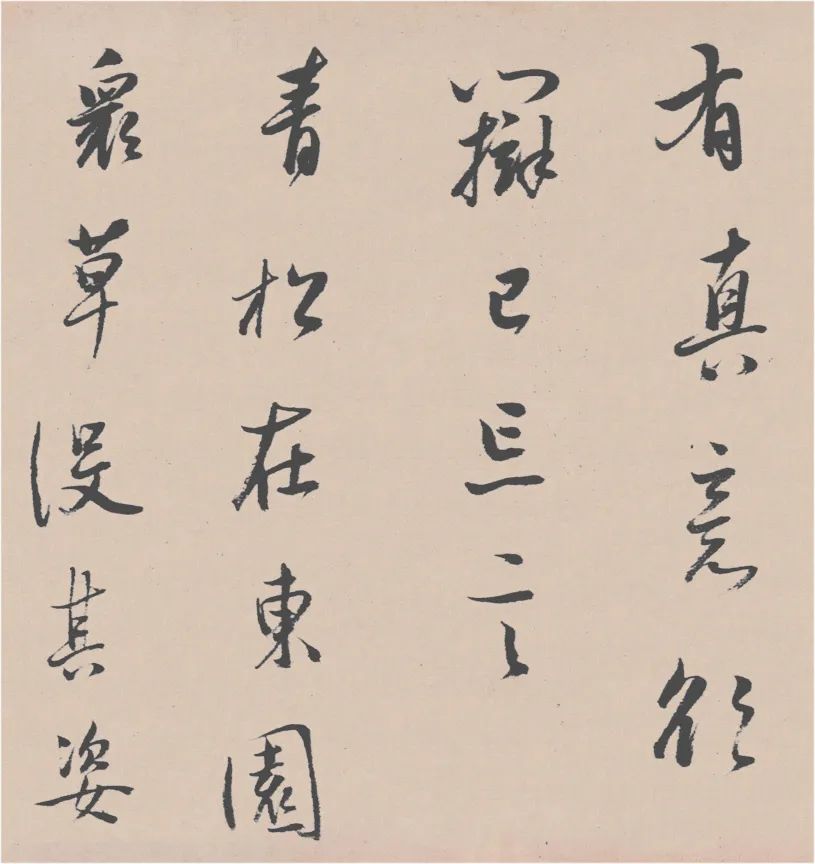 有真意欲
辯已忘言
青松在東園
衆草沒其姿